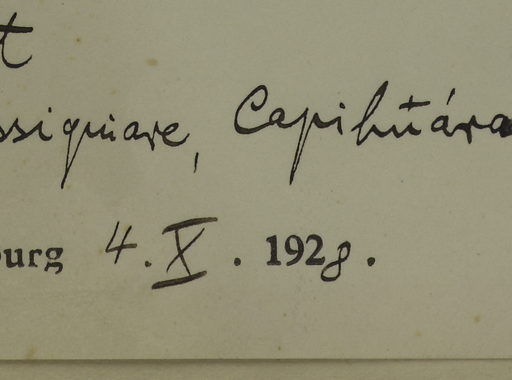 t
ssiquiare, Capihuára
burg 4.X.1928.